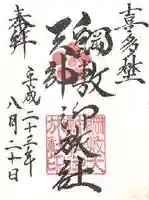 喜多埜
綱敷天神御旅社
奉拝
平成二十三年
八月二十日